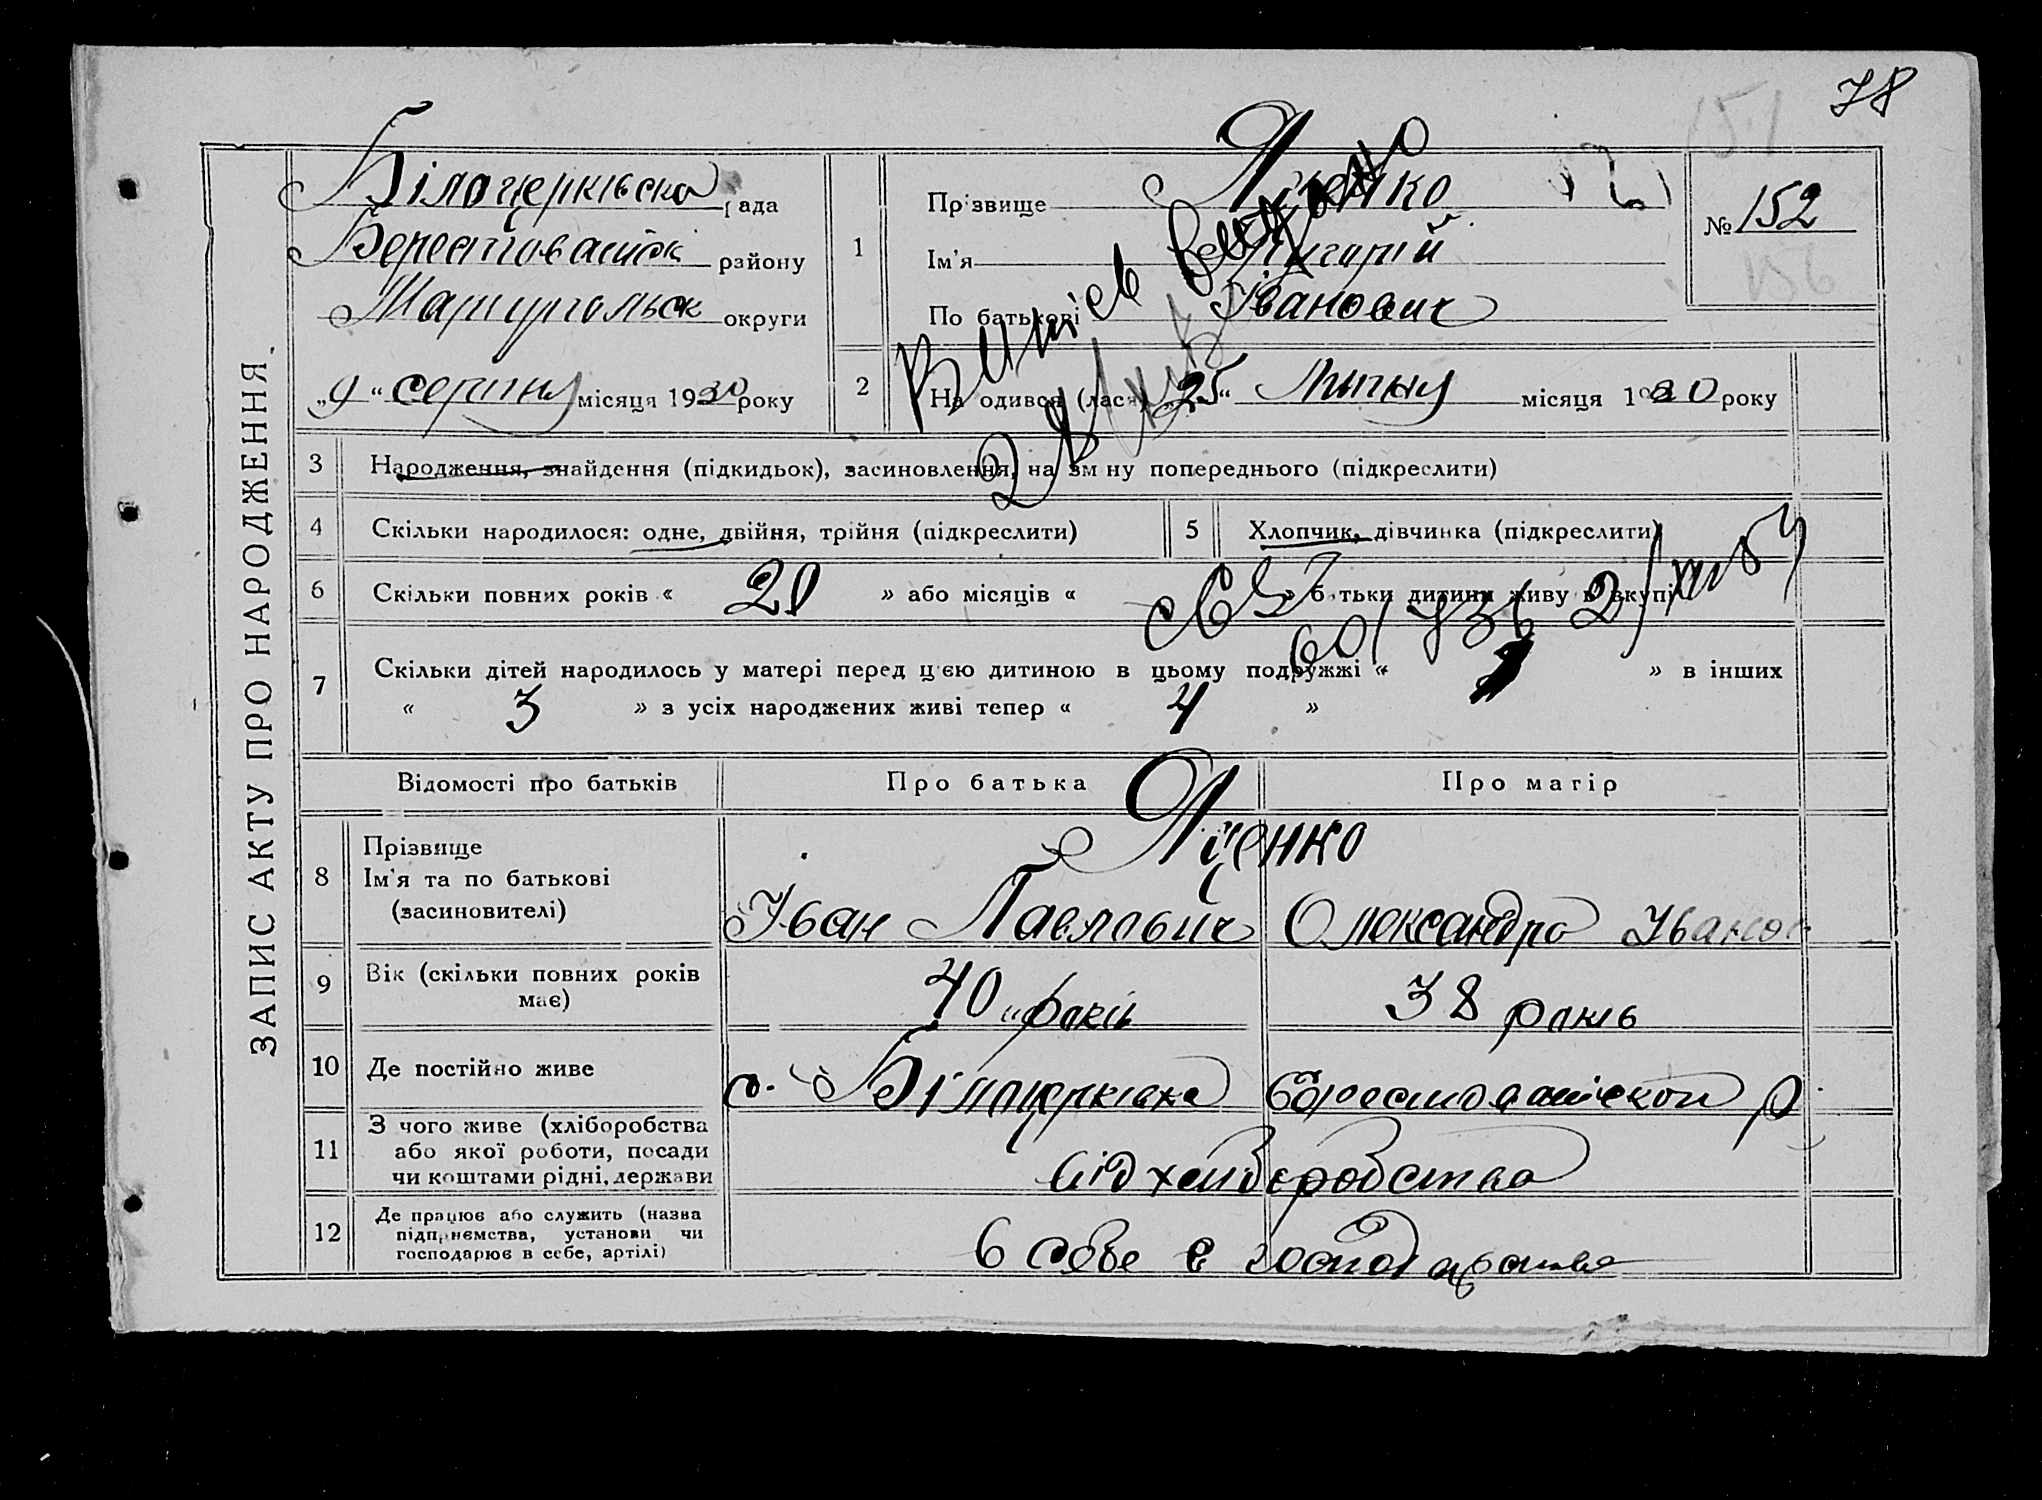 78
151
ЗАПИС АКТУ ПРО НАРОДЖЕННЯ
Білоцерківска рада
району
Маріупольск округи
„9“ серпня місяця 1930 року
1
Прізвище Яценко
Ім'я Григорій
По батькові Іванович
№ 152
156
2
Народився (лася) „25“ Липня місяця 1930 року
Витяг видано
3 Народження, знайдення (підкидьок), засиновлення, на зміну попереднього (підкреслити)
4 Скільки народилося: одне, двійня, трійня (підкреслити)
5 Хлопчик, дівчинка (підкреслити)
6 Скільки повних років « 20 » або місяців « » батьки дитини живуть вкупі
7 Скільки дітей народилось у матері перед цією дитиною в цьому подружжі « » в інших
« 3 » з усіх народжених живі тепер « 4 »
Відомості про батьків
Про батька
Про матір
8 Прізвище
Ім'я та по батькові
(засиновителі)
Яценко
Іван Павлович
Олександра Іванов
9 Вік (скільки повних років має)
40 років
38 років
10 Де постійно живе
с. Білоцерківка
р.
11 З чого живе (хліборобства
або якої роботи, посади
чи коштами рідні, держави
від хліборобства
12 Де працює або служить (назва
підприємства, установи чи
господарює в себе, артілі)
в себе в господарстве